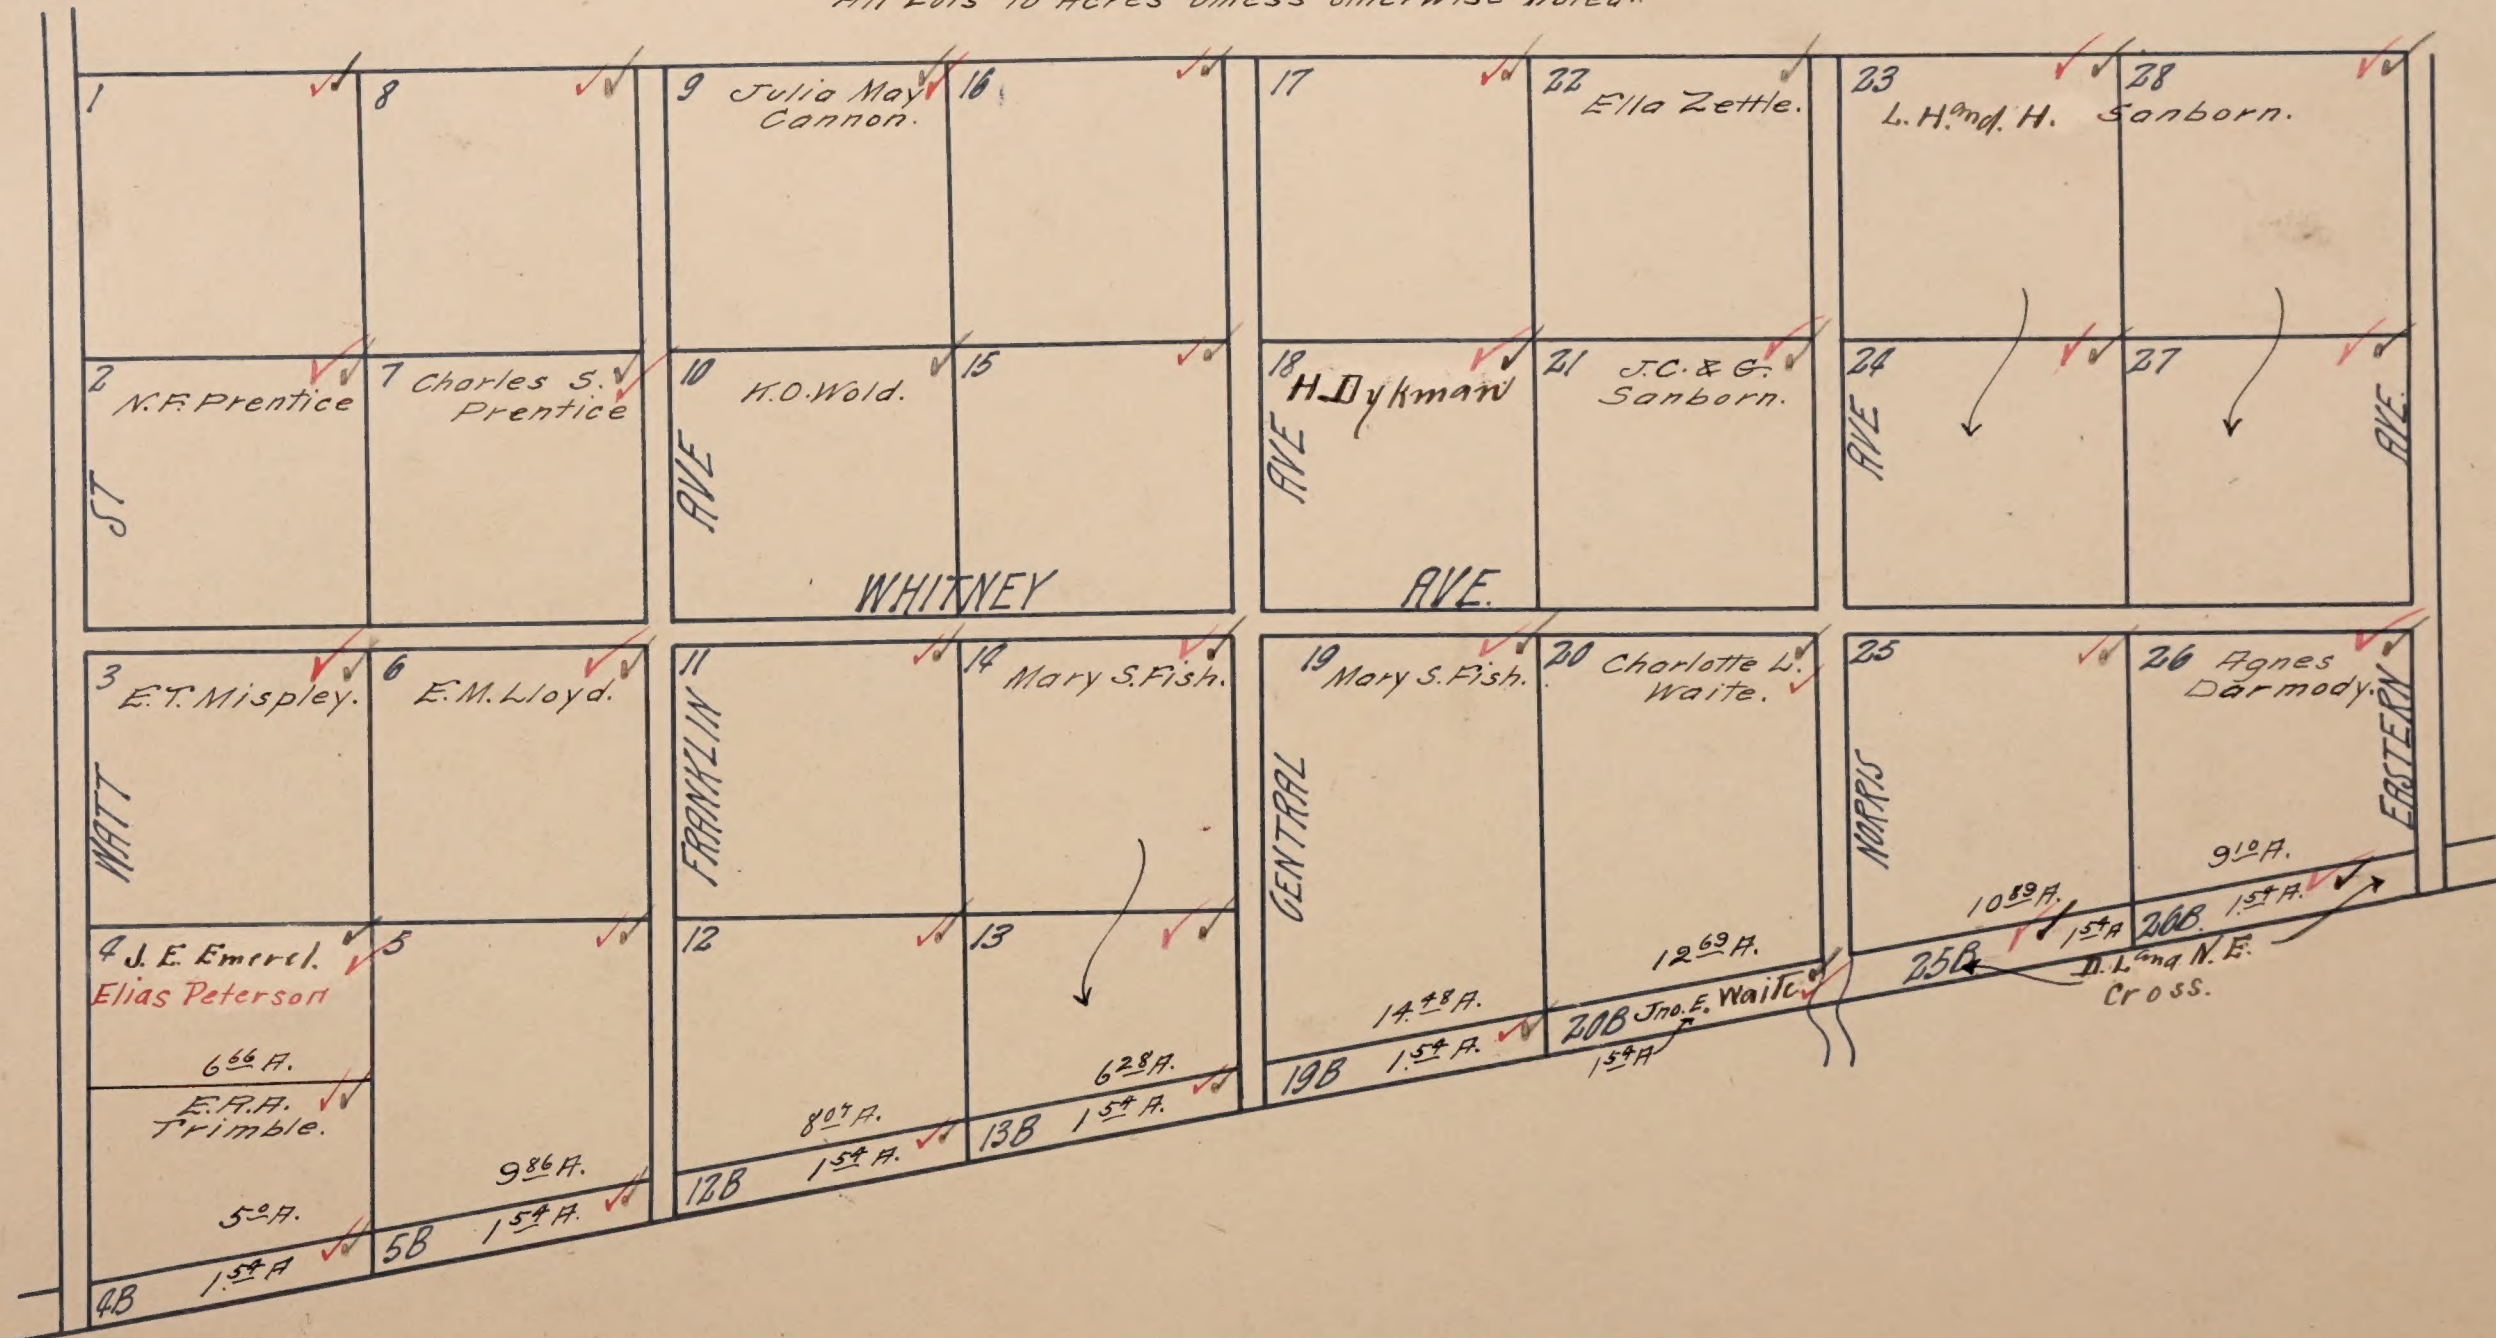 All Lots 10 Acres unless otherwise noted.
1
8
9 Julia May
Cannon.
16
17
22
Ella Zettle.
23
28
L. H. and. H. Sanborn.
2
N.F. Prentice
7 Charles S.
Prentice
10
K.O. Wold.
15
18
H. Dykman
21 J.C. & G.
Sanborn.
24
27
ST
AVE
AVE
AVE
AVE.
WHITNEY AVE.
3
E.T. Mispley.
6
E.M. Lloyd.
11
14
Mary S. Fish.
19
Mary S. Fish.
20 Charlotte L.
Waite.
25
26 Agnes
Darmody.
WATT
FRANKLIN
CENTRAL
NORRIS
EASTERN
4 J. E.
Elias Peterson
6 66 A.
E.R.A.
Trimble.
5 0 A.
1 54 A
4B
5
9 86 A.
5B
1 54 A.
12
8 07 A.
12B
1 54 A.
13
6 28 A.
13B
1 54 A.
14 48 A.
19B
1 54 A.
12 69 A.
20B Jno. E. Waite
1 54 A
10 89 A.
1 54 A
25B
9 10 A.
1 54 A.
26B.
D. L. and N. E.
Cross.